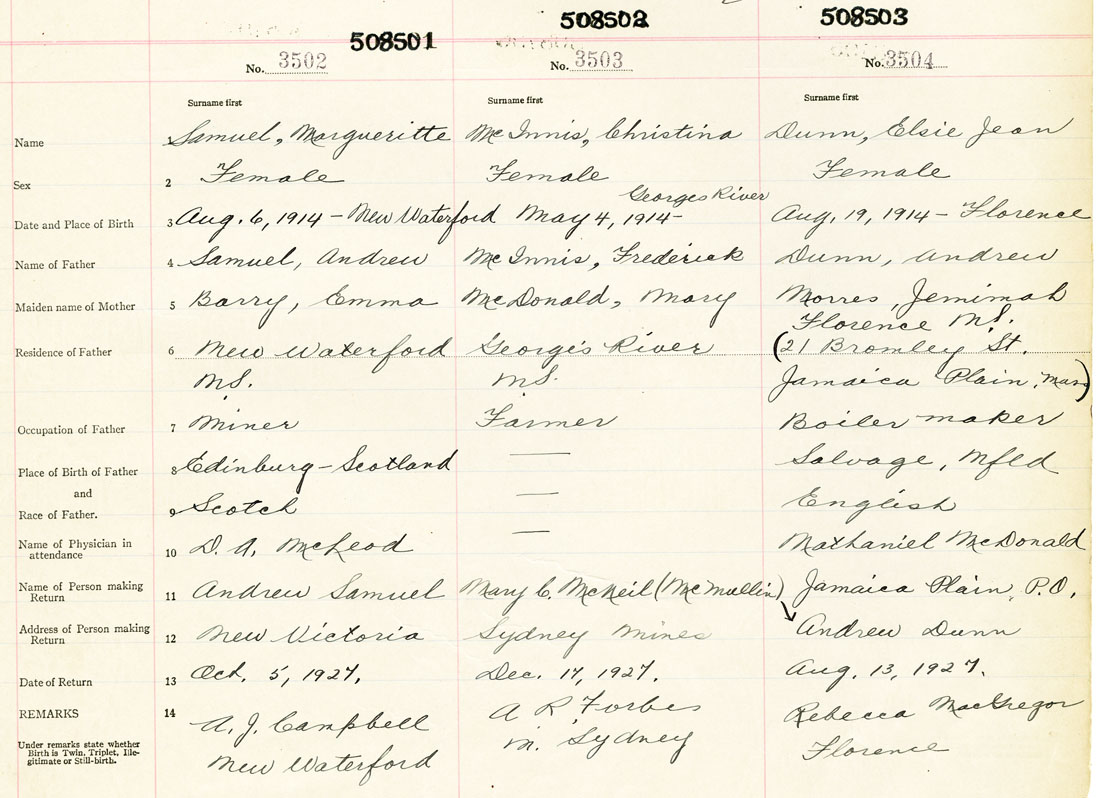 508501 508502 508503
No. 3502 No. 3503 No. 3504
Surname first Surname first Surname first
Name 1 Samuel, Margueritte McInnis, Christina Dunn, Elsie Jean
Sex 2 Female Female Female
Georges River
Date and Place of Birth 3 Aug. 6, 1914 - New Waterford May 4, 1914 - Aug, 19, 1914 - Florence
Name of Father 4 Samuel, Andrew McInnis, Frederick Dunn, Andrew
Maiden name of Mother 5 Barry, Emma McDonald, Mary Morres, Jemimah
Florence N.S.
Residence of Father 6 New Waterford Georges River (21 Bromley St.
N.S. N.S. Jamaica Plain, Mass)
Occupation of Father 7 Miner Farmer Boiler maker
Place of Birth of Father 8 Edinburg - Scotland — Salvage, Nfld
and
Race of Father. 9 Scotch — English
Name of Physician in
attendance 10 D. A. McLeod — Nathaniel McDonald
Name of Person making
Return 11 Andrew Samuel Mary C. McNeil (McMullin) Jamaica Plain, P.O.
Address of Person making
Return 12 New Victoria Sydney Mines Andrew Dunn
Date of Return 13 Oct. 5, 1927. Dec. 17, 1927. Aug. 13, 1927.
REMARKS 14 A. J. Campbell A R Forbes Rebecca MacGregor
Under remarks state whether
Birth is Twin, Triplet, Ille-
gitimate or Still-birth.
New Waterford N. Sydney Florence